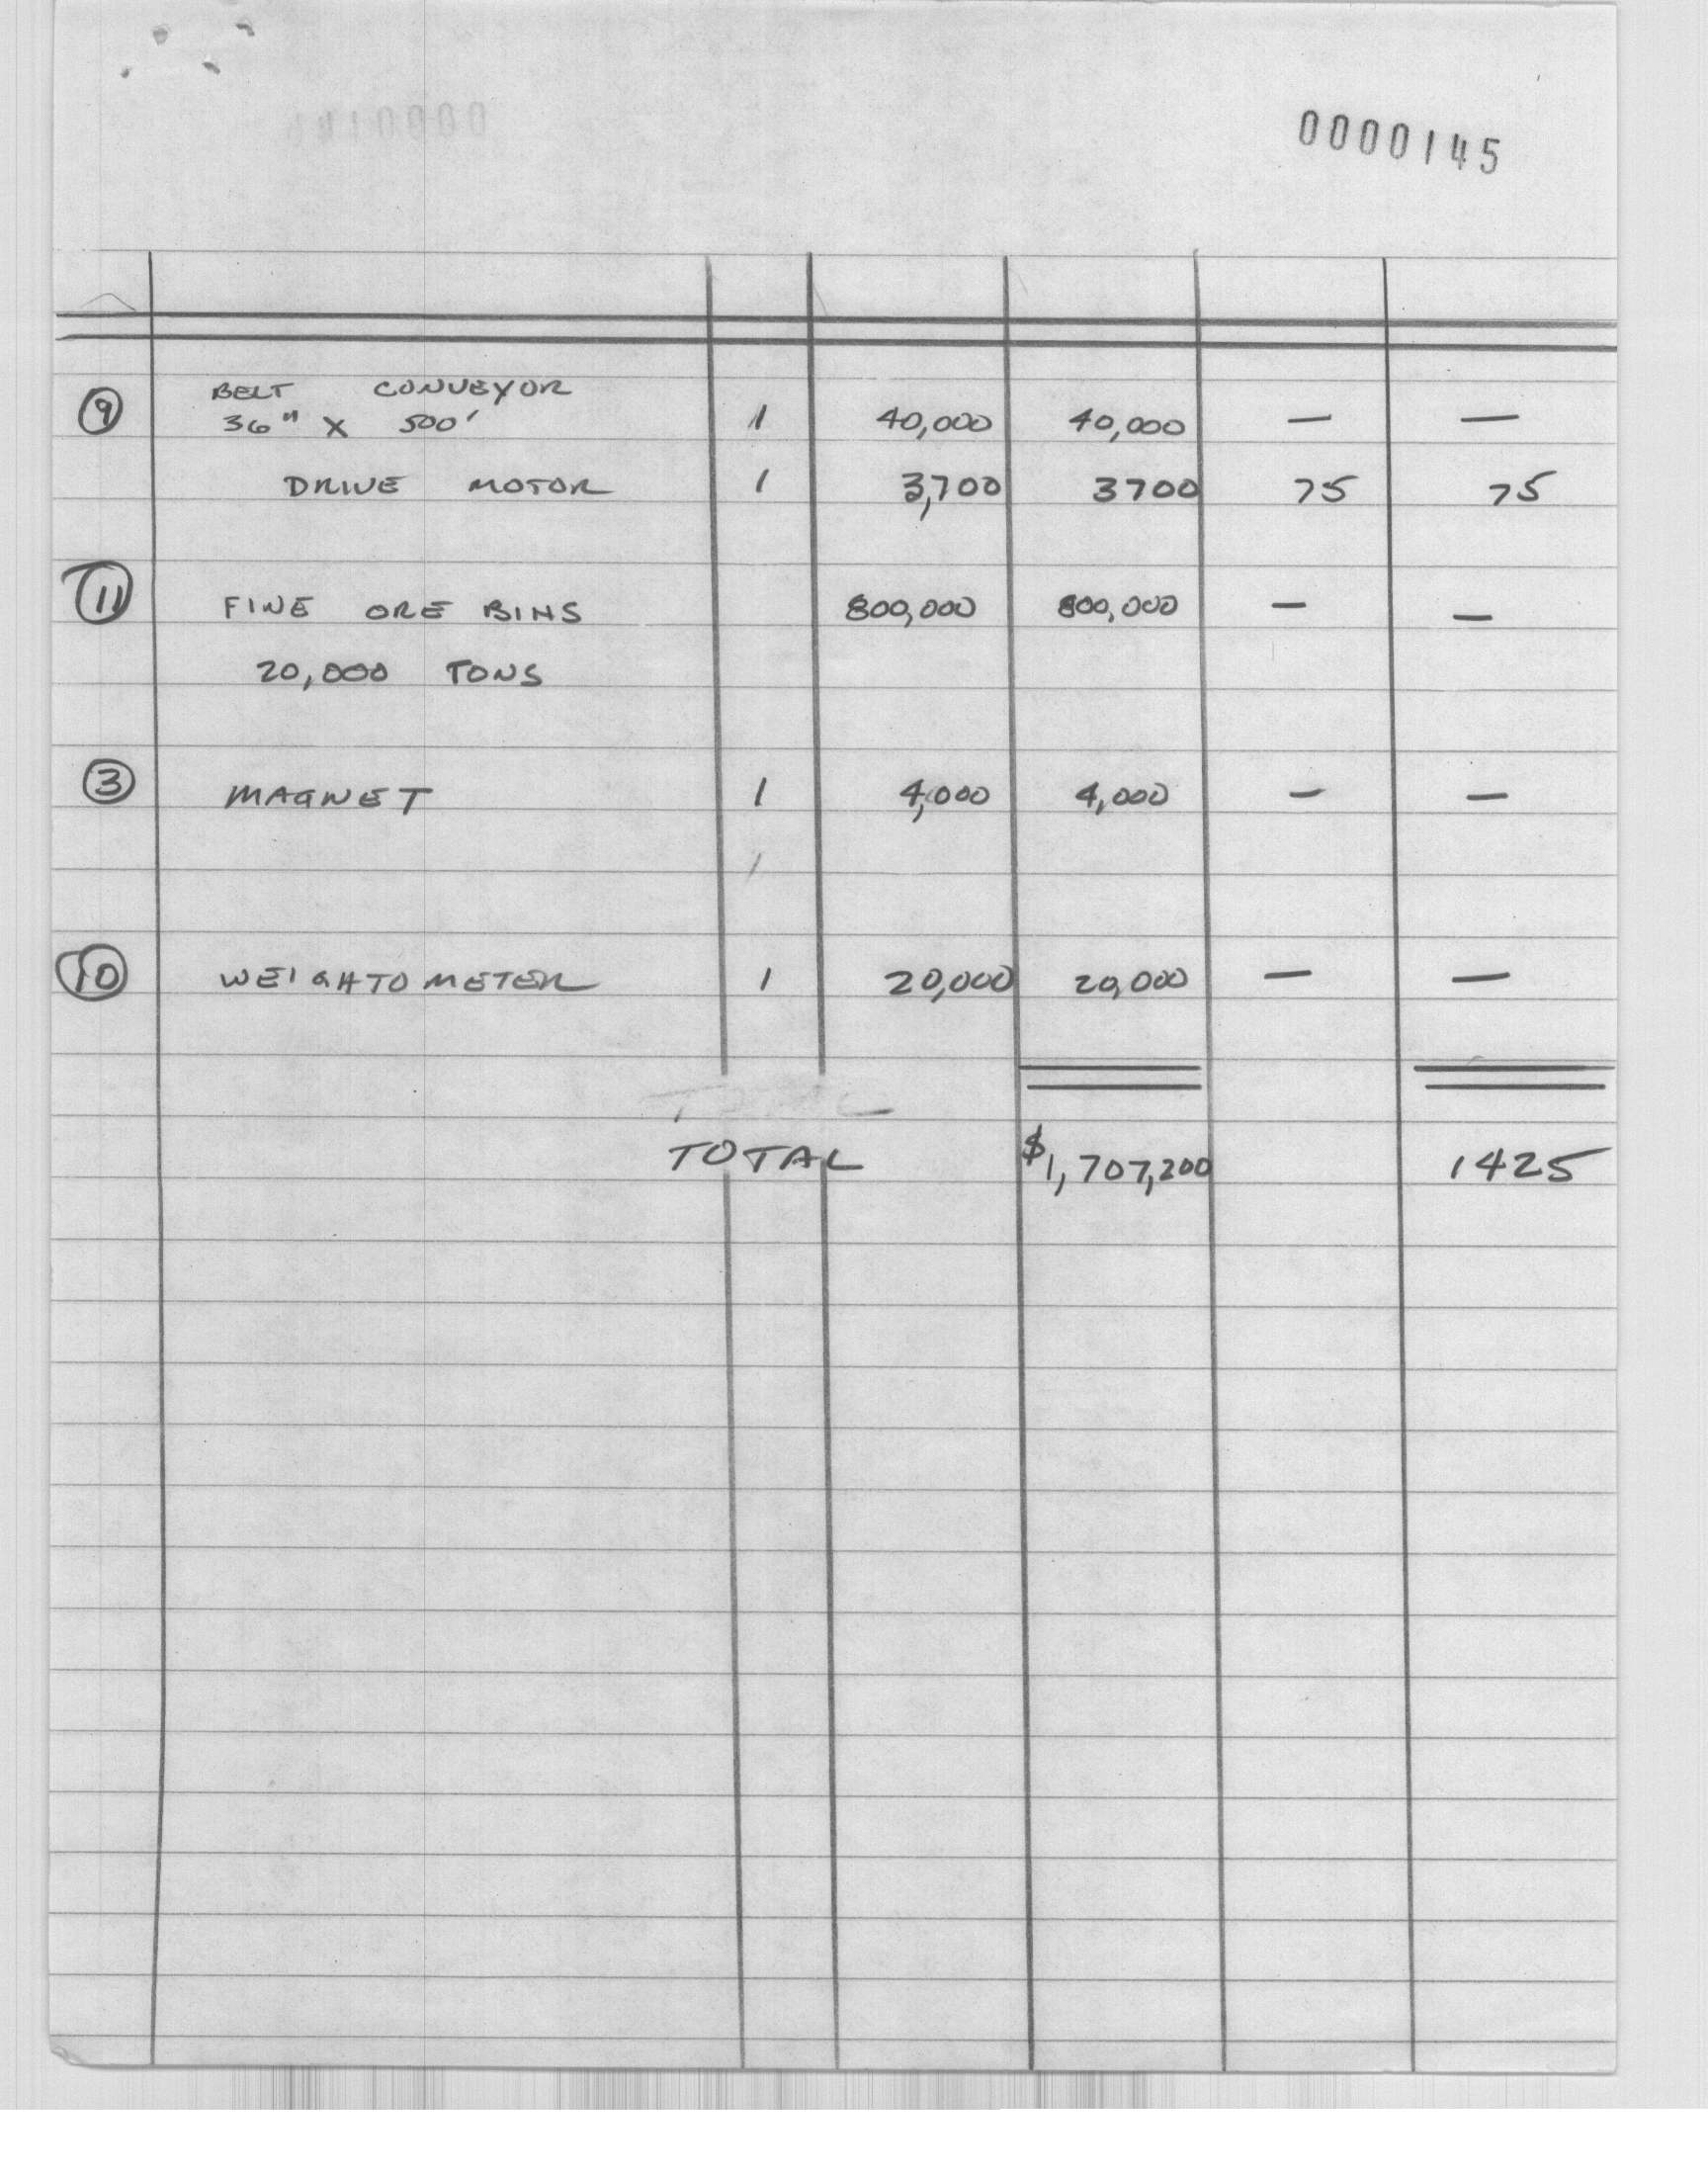 0000145
9 BELT CONVEYOR
36" X 500' 1 40,000 40,000 — —
DRIVE MOTOR 1 3,700 3700 75 75
11 FINE ORE BINS 800,000 800,000 — —
20,000 TONS
3 MAGNET 1 4,000 4,000 — —
10 WEIGHTOMETER 1 20,000 20,000 — —
TOTAL $1,707,200 1425